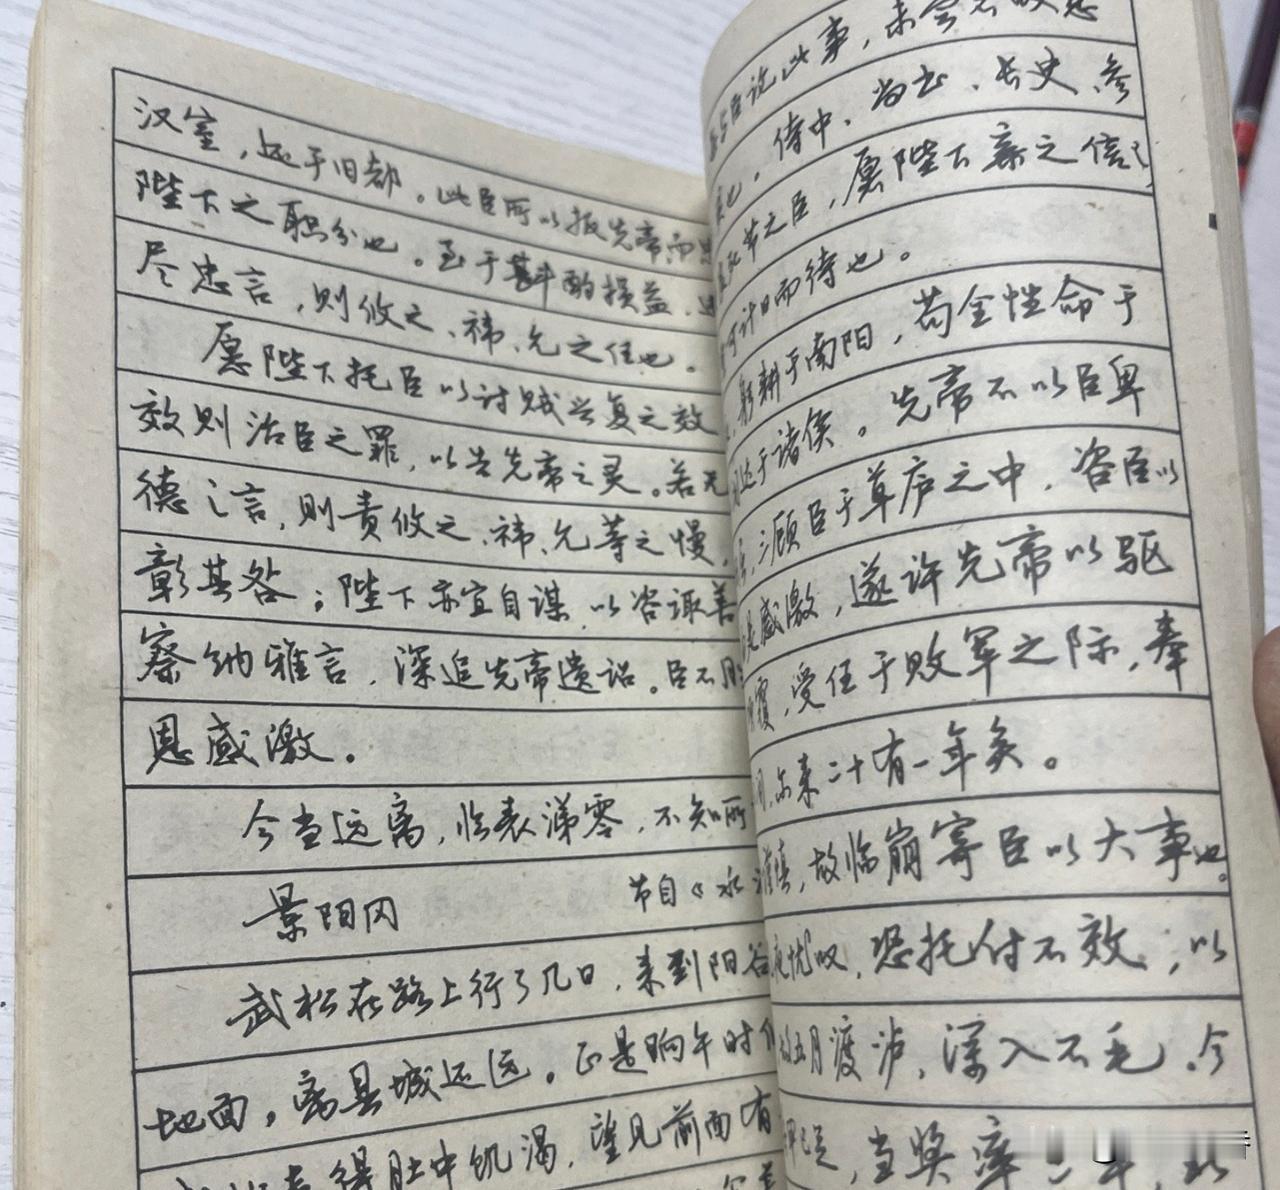 汉室，还于旧都。此臣所以报先帝而忠
陛下之职分也。至于斟酌损益，进
尽忠言，则攸之、祎、允之任也。
愿陛下托臣以讨贼兴复之效
效则治臣之罪，以告先帝之灵。若无
德之言，则责攸之、祎、允等之慢，
彰其咎；陛下亦宜自谋，以咨诹善
察纳雅言，深追先帝遗诏。臣不胜
恩感激。
今当远离，临表涕零，不知所
景阳冈 节自《水
武松在路上行了几日，来到阳谷
地面。离县城还远。正是晌午时
得肚中饥渴，望见前面有
与臣论此事，未尝不叹息
侍中、尚书、长史、参
死节之臣，愿陛下亲之信之
可计日而待也。
躬耕于南阳，苟全性命于
达于诸侯。先帝不以臣卑
三顾臣于草庐之中，咨臣以
是感激，遂许先帝以驱
覆，受任于败军之际，奉
间，尔来二十有一年矣。
谨慎，故临崩寄臣以大事也。
夜忧叹，恐托付不效，以
故五月渡泸，深入不毛。今
甲已足，当奖率三军，